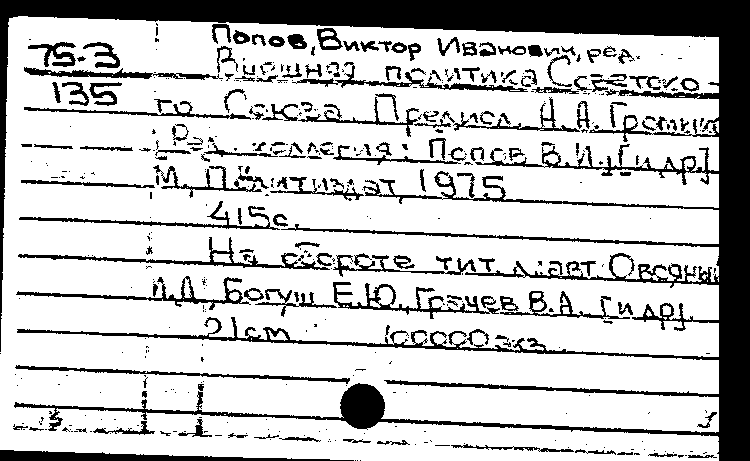 Попов, Виктор Иванович, ред.
75-3 Внешняя политика Советско-
135 го Союза. Предисл. А.А. Громыко
Ред. коллегия: Попов В.И., [и др.]
М., Политиздат, 1975
415с.
На обороте тит. л.: авт. Овсяный
И.Д., Богуш Е.Ю., Грачев В.А. [и др].
21см 100000 экз.